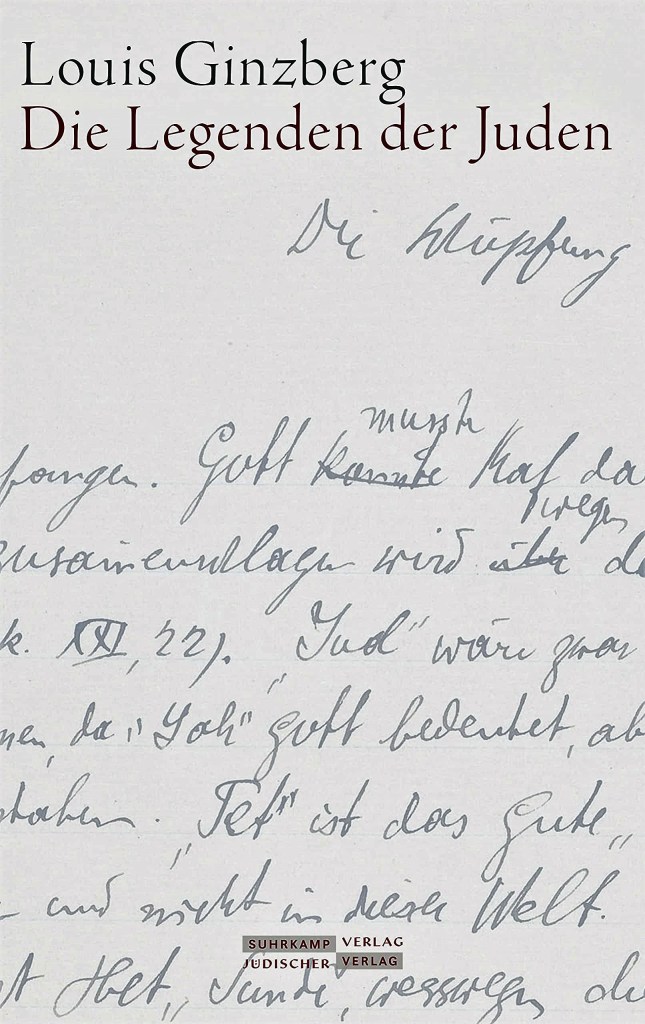 Louis Ginzberg
Die Legenden der Juden
Die Schöpfung
musste
fangen. Gott konnte Kaf da
wegen
zusammenschlagen wird über de
k. XXI, 22). „Jud“ wäre zwar
nen, da „Yah“ Gott bedeutet, ab
staben. „Tet“ ist das Gute„
und nicht in dieser Welt.
SUHRKAMP VERLAG
JÜDISCHER VERLAG
t Het„ Sünde, wesswegen die